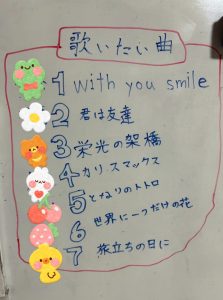 歌いたい曲
1 with you smile
2 君は友達
3 栄光の架橋
4 カリスマックス
5 となりのトトロ
6 世界に一つだけの花
7 旅立ちの日に